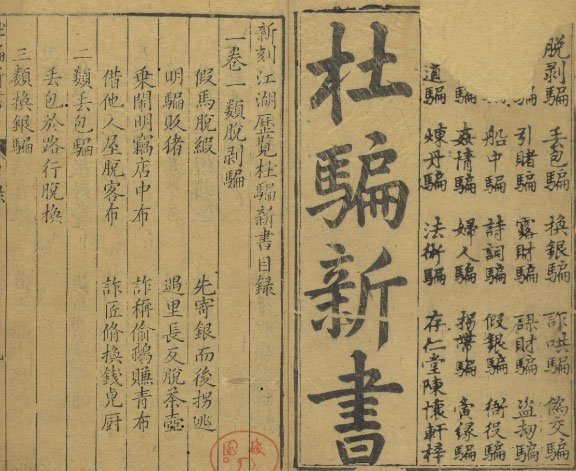 脫剥騙 丢包騙 換銀騙 詐哄騙 偽交騙
騙 引賭騙 露財騙 謀財騙 盜劫騙
騙 船中騙 詩詞騙 假銀騙 衙役騙
騙 姦情騙 婦人騙 拐帶騙 緣騙
道騙 煉丹騙 法術騙 存仁堂陳懷軒梓
杜騙新書
新刻江湖歷覽杜騙新書目錄
一卷一類脫剥騙
假馬脫緞 先寄銀而後拐逃
明騙販猪 遇里長反脫茶壺
乘鬧明竊店中布 詐稱偷鵝賺青布
借他人屋脫客布 詐匠脩換錢卓厨
二類丢包騙
丢包於路行脫換
三類換銀騙